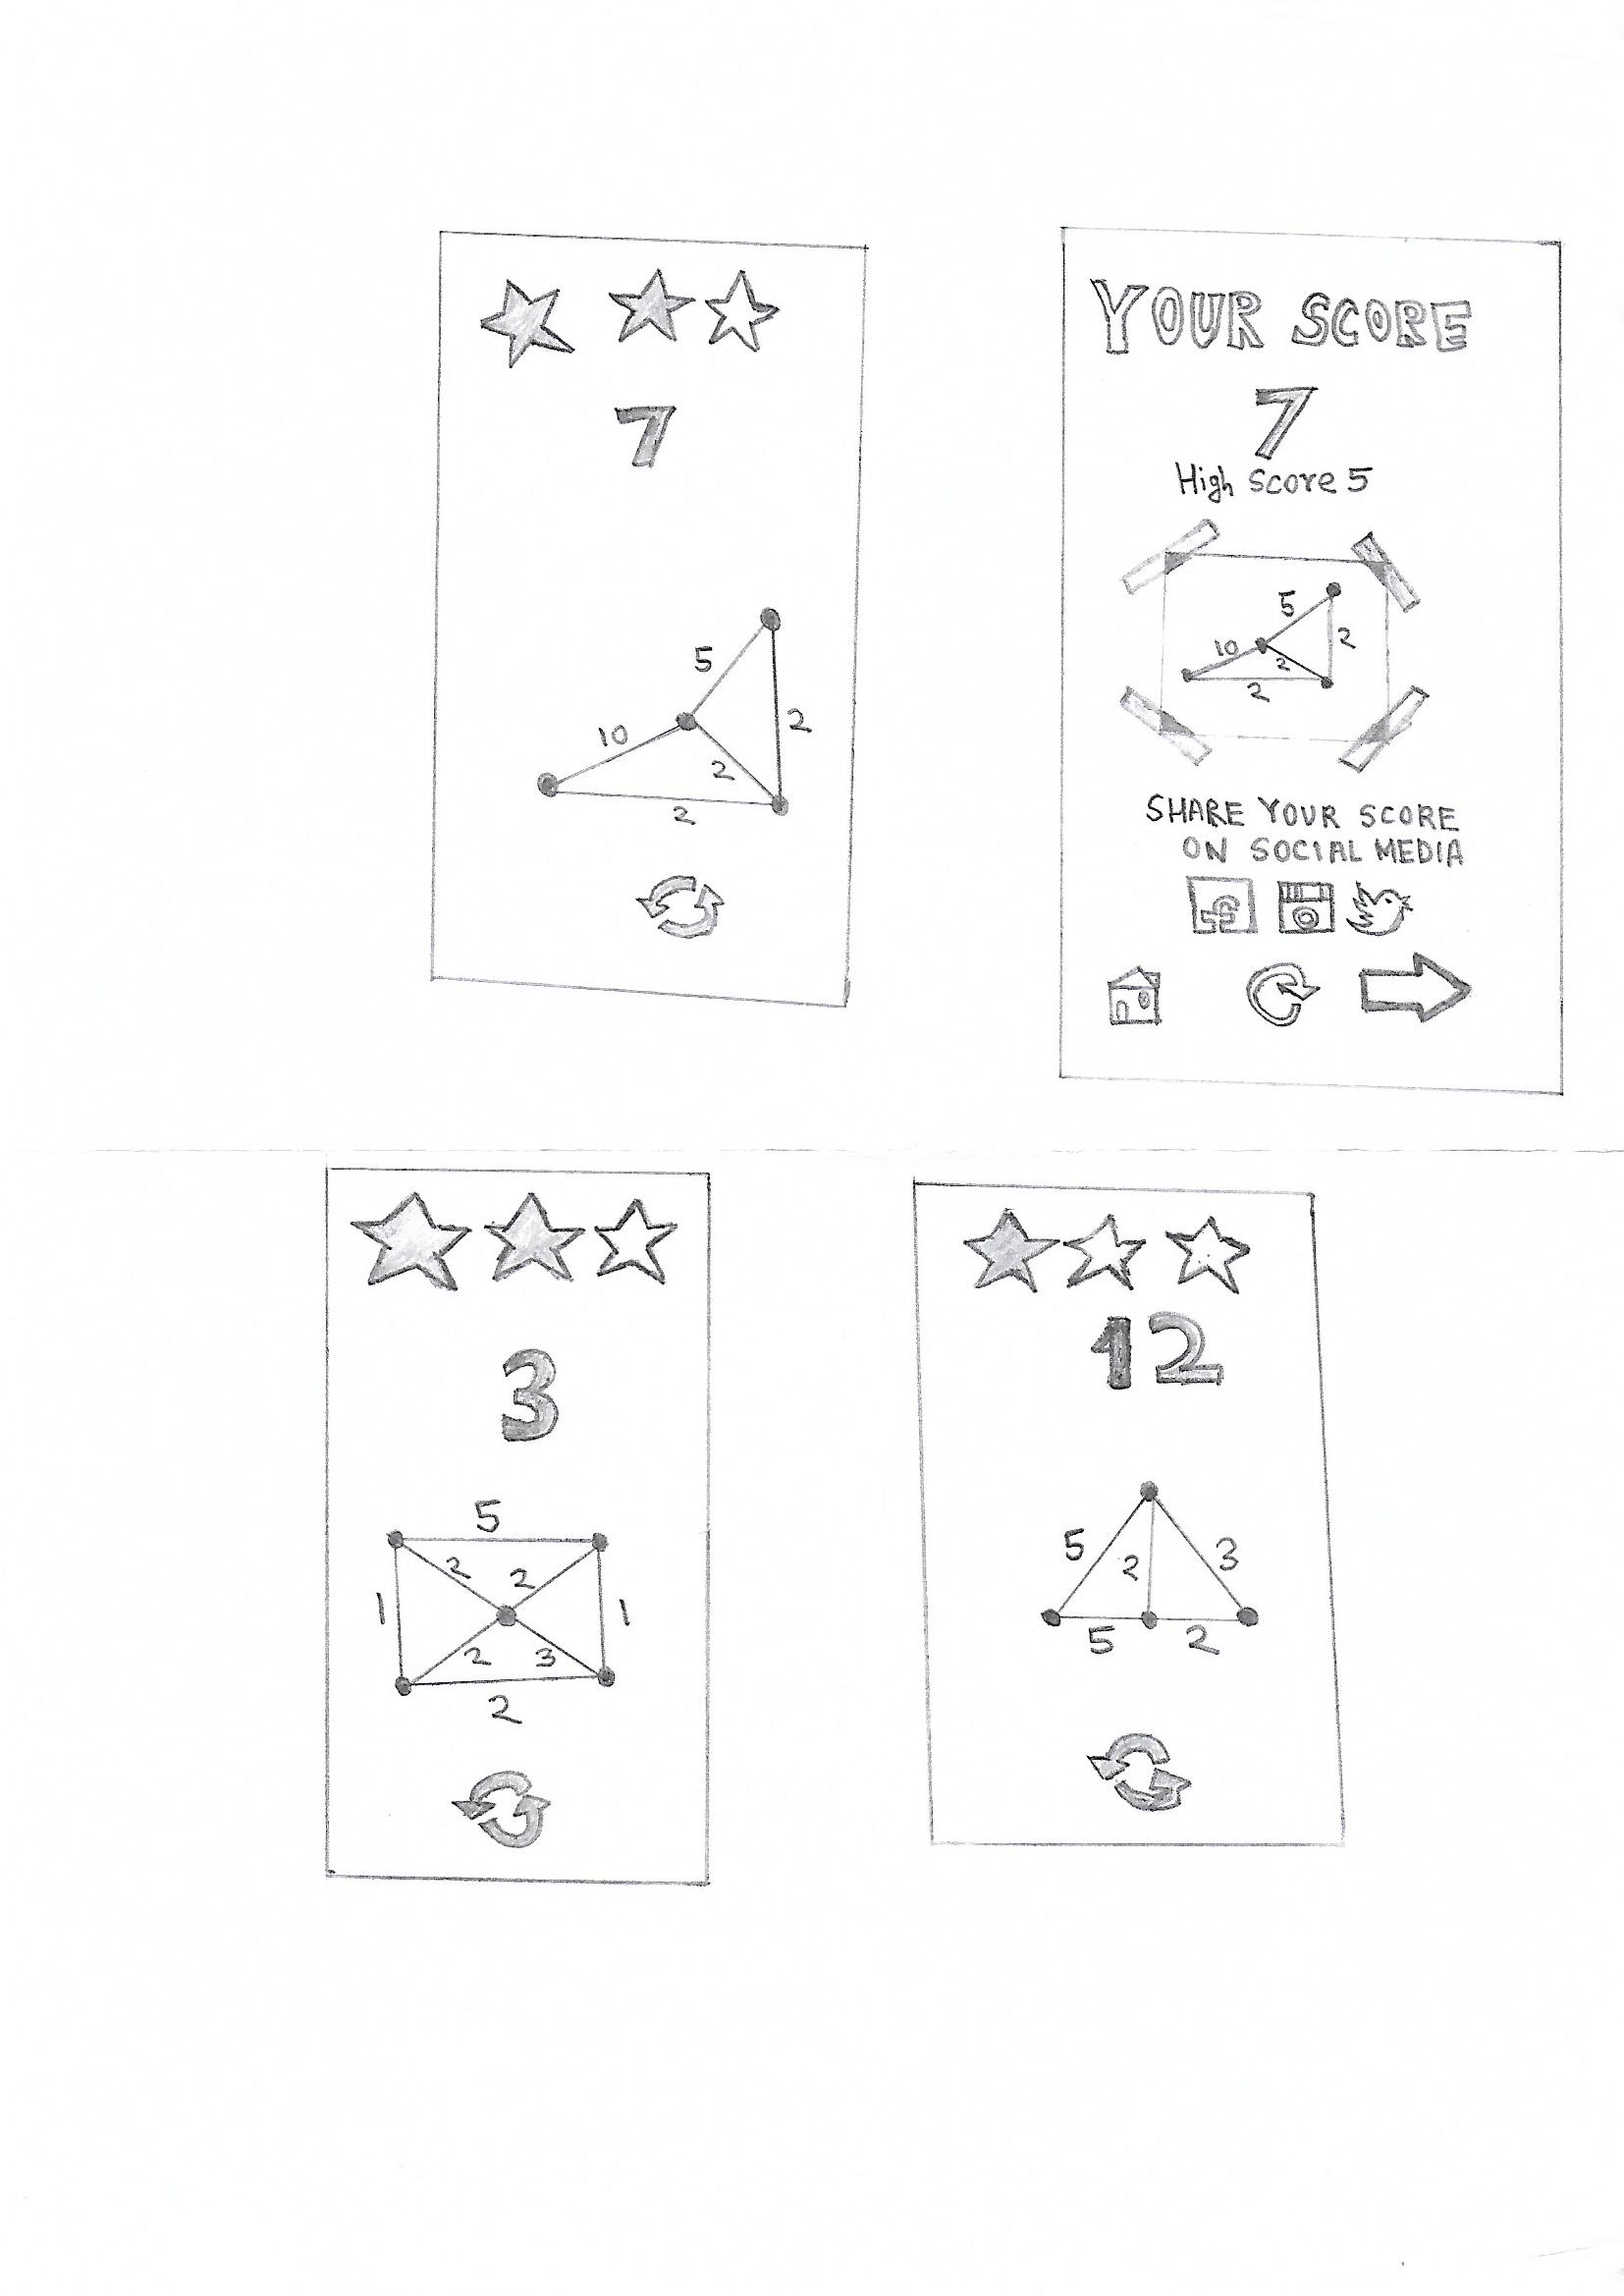 7
5
10
2
2
2
YOUR SCORE
7
High Score 5
5
10
2
2
2
SHARE YOUR SCORE
ON SOCIAL MEDIA
3
5
2 2
1 1
2 3
2
12
5 2 3
5 2